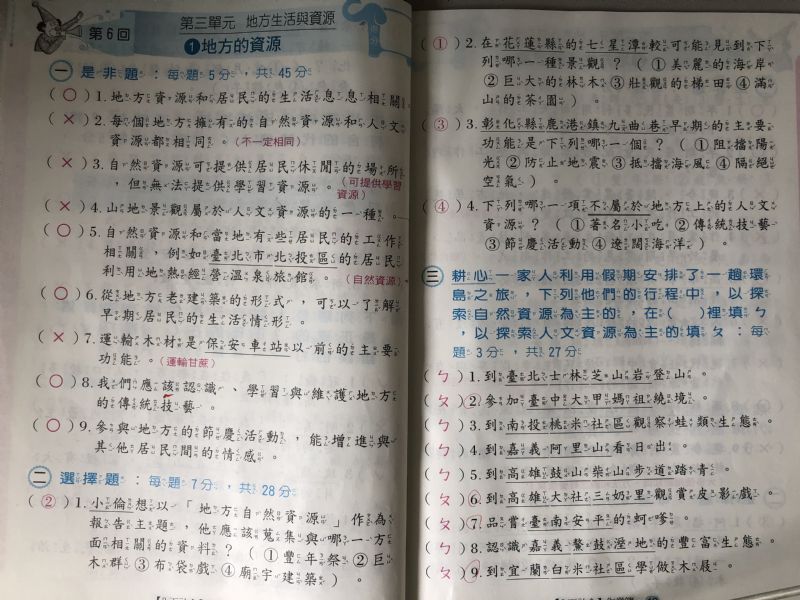 第6回
第三單元 地方生活與資源
1 地方的資源
一 是非題：每題5分，共45分
(○) 1. 地方資源和居民的生活息息相關。
(×) 2. 每個地方擁有的自然資源和人文
資源都相同。(不一定相同)
(×) 3. 自然資源可提供居民休閒的場所
，但無法提供學習資源。(可提供學習
資源)
(×) 4. 山地景觀屬於人文資源的一種。
(○) 5. 自然資源和當地有些居民的工作
相關，例如臺北市北投區的居民
利用地熱經營溫泉旅館。(自然資源)
(○) 6. 從地方老建築的形式，可以了解
早期居民的生活情形。
(×) 7. 運輸木材是保安車站以前的主要
功能。(運輸甘蔗)
(○) 8. 我們應該認識、學習與維護地方
的傳統技藝。
(○) 9. 參與地方的節慶活動，能增進與
其他居民間的情感。
二 選擇題：每題7分，共28分
(②) 1. 小倫想以「地方自然資源」作為
報告主題，他應該蒐集與哪一方
面相關的資料？(①豐年祭 ②巨
木群 ③布袋戲 ④廟宇建築)。
(①) 2. 在花蓮縣的七星潭較可能見到下
列哪一種景觀？(①美麗的海岸
②巨大的林木 ③壯觀的梯田 ④滿
山的茶園)。
(③) 3. 彰化縣鹿港鎮九曲巷早期的主要
功能是下列哪一個？(①阻擋陽
光 ②防止地震 ③抵擋海風 ④隔絕
空氣)。
(④) 4. 下列哪一項不屬於地方上的人文
資源？(①著名小吃 ②傳統技藝
③節慶活動 ④遼闊海洋)。
三 耕心一家人利用假期安排了一趟環
島之旅，下列他們的行程中，以探
索自然資源為主的，在( )裡填ㄅ
，以探索人文資源為主的填ㄆ：每
題3分，共27分
(ㄅ) 1. 到臺北士林芝山岩登山。
(ㄆ) 2. 參加臺中大甲媽祖繞境。
(ㄅ) 3. 到南投桃米社區觀察蛙類生態。
(ㄅ) 4. 到嘉義阿里山看日出。
(ㄅ) 5. 到高雄鼓山柴山步道踏青。
(ㄆ) 6. 到高雄大社三奶里觀賞皮影戲。
(ㄆ) 7. 品嘗臺南安平的蚵嗲。
(ㄅ) 8. 認識嘉義鰲鼓溼地的豐富生態。
(ㄆ) 9. 到宜蘭白米社區學做木屐。